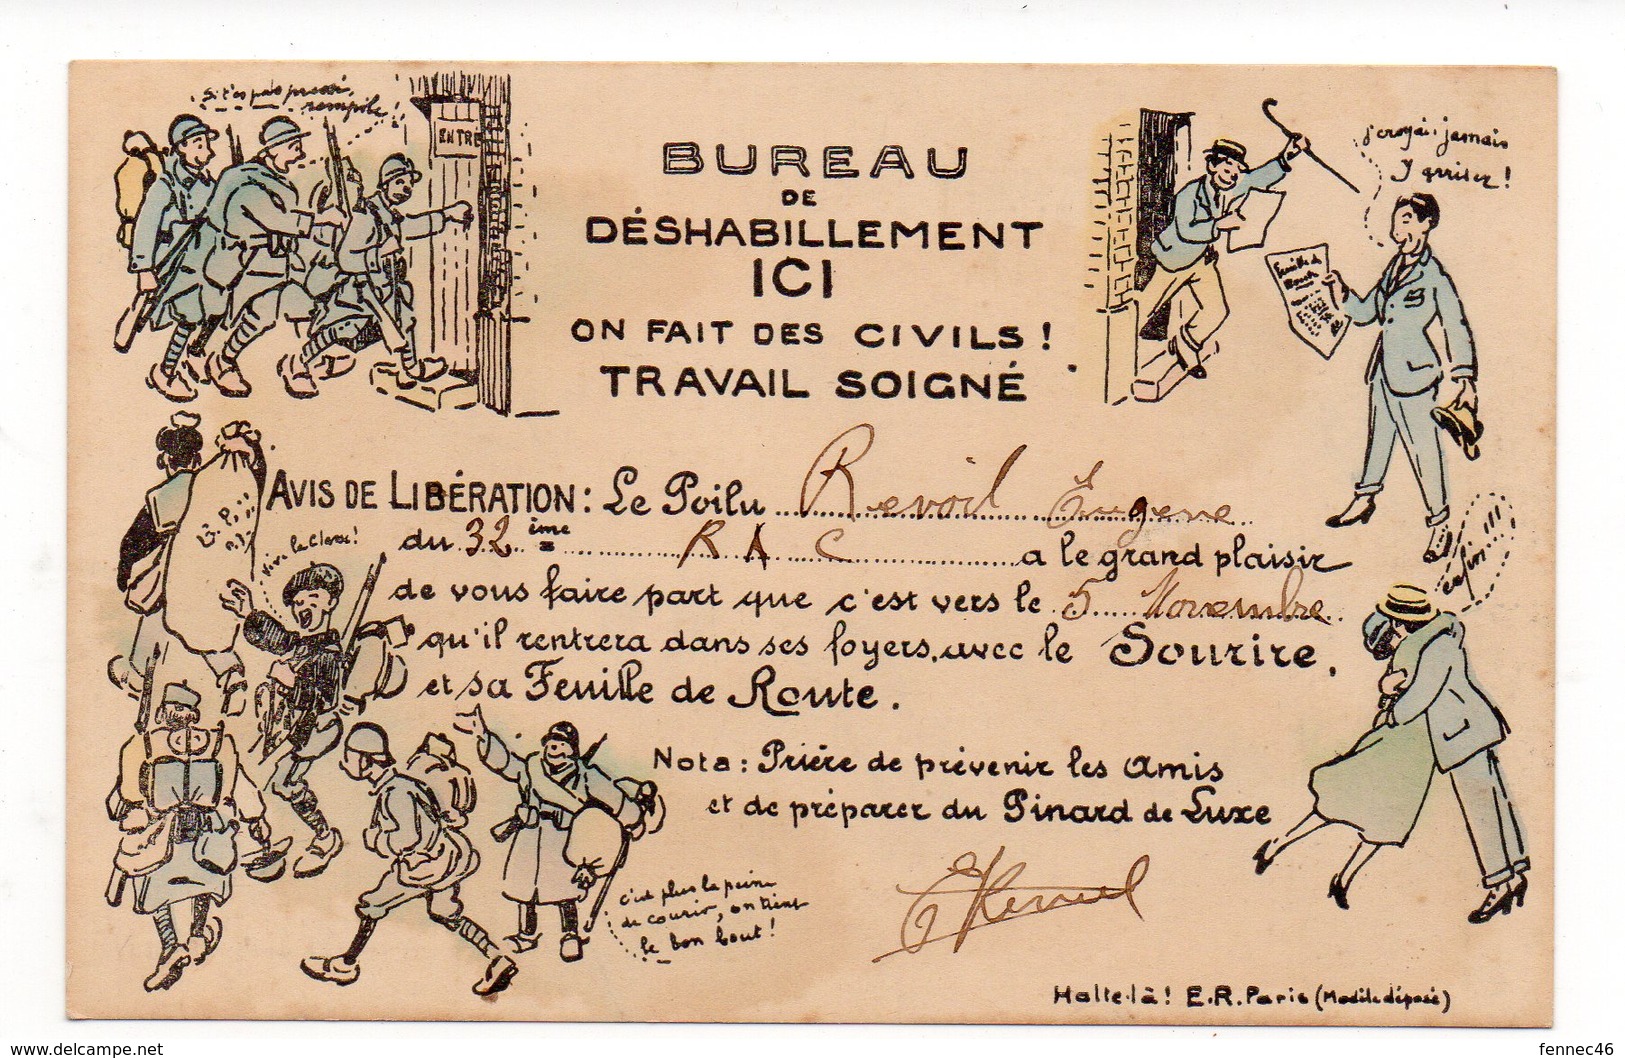 Si t'es pas pressé,
rempile !
ENTRE
BUREAU
DE
DÉSHABILLEMENT
ICI
ON FAIT DES CIVILS !
TRAVAIL SOIGNÉ
j'croyai. jamais
y arriver !
Feuille de
Route
AVIS DE LIBÉRATION : Le Poilu Revoil Eugene
du 32 ème R A C a le grand plaisir
de vous faire part que c'est vers le 5 Novembre
qu'il rentrera dans ses foyers, avec le Sourire,
et sa Feuille de Route.
Vive la Classe !
enfin....!!!
Nota : Prière de prévenir les amis
et de préparer du Pinard de Luxe
c'est plus la peine
de courir, on tient
le bon bout !
Halte-là ! E.R. Paris (Modèle déposé)
delcampe.net
fennec46